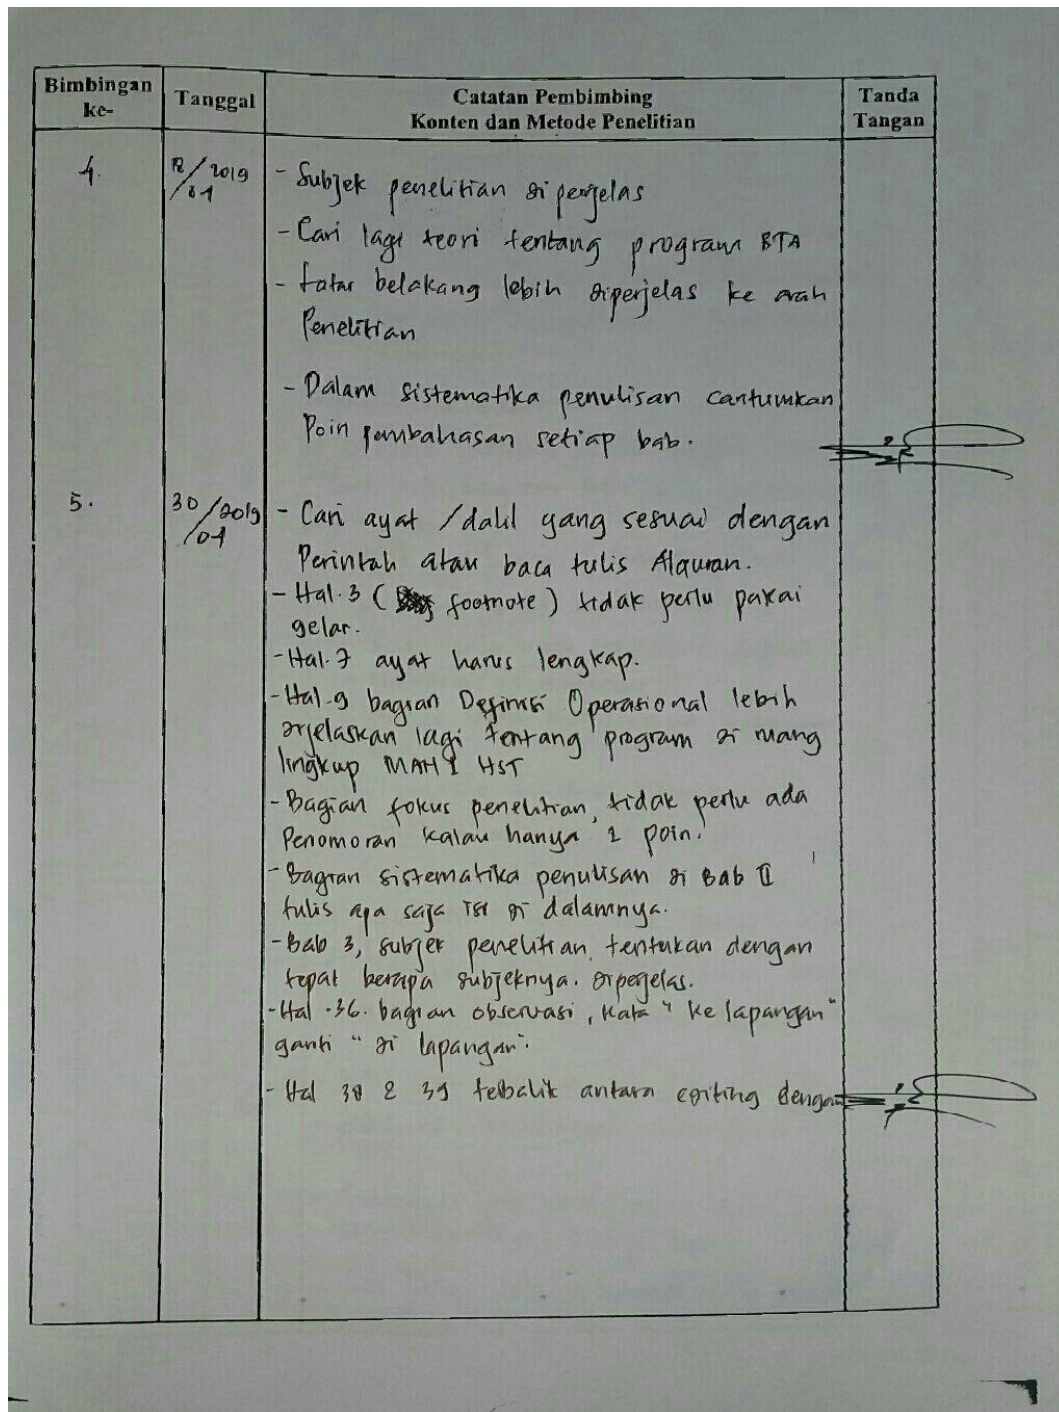 Bimbingan ke- Tanggal Catatan Pembimbing Konten dan Metode Penelitian Tanda Tangan
4. /2019 /04 - Subjek penelitian diperjelas
- Cari lagi teori tentang program BTA
- Latar belakang lebih diperjelas ke arah
Penelitian
- Dalam sistematika penulisan cantumkan
Poin pembahasan setiap bab.
5. 30/2019 /04 - Cari ayat /dalil yang sesuai dengan
Perintah atau baca tulis Alquran.
- Hal.3 ( footnote) tidak perlu pakai
gelar.
- Hal.7 ayat harus lengkap.
- Hal.9 bagian Definisi Operasional lebih
dijelaskan lagi tentang program di ruang
lingkup MAN 1 HST
- Bagian fokus penelitian, tidak perlu ada
Penomoran kalau hanya 1 poin.
- Bagian sistematika penulisan di Bab II
tulis apa saja isi di dalamnya.
- Bab 3, subjek penelitian tentukan dengan
tepat berapa subjeknya. diperjelas.
- Hal .36. bagian observasi, kata "ke lapangan"
ganti "di lapangan".
- Hal 38 & 39 tebalik antara editing dengan